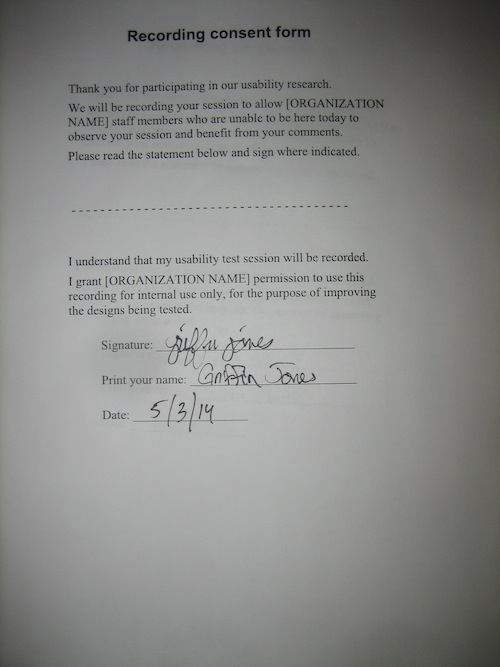 Recording consent form
Thank you for participating in our usability research.
We will be recording your session to allow [ORGANIZATION
NAME] staff members who are unable to be here today to
observe your session and benefit from your comments.
Please read the statement below and sign where indicated.
I understand that my usability test session will be recorded.
I grant [ORGANIZATION NAME] permission to use this
recording for internal use only, for the purpose of improving
the designs being tested.
Signature: griffin jones
Print your name: Griffin Jones
Date: 5/3/14